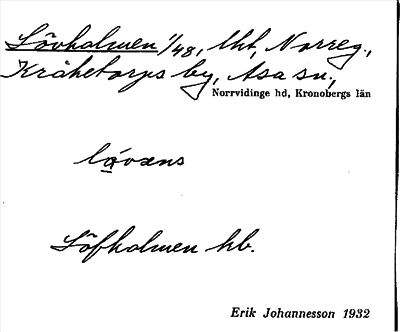 Lövholmen 1/48, lht, Norreg.,
Kråketorps by, Asa sn,
Norrvidinge hd, Kronobergs län
Löfholmen hb.
Erik Johannesson 1932